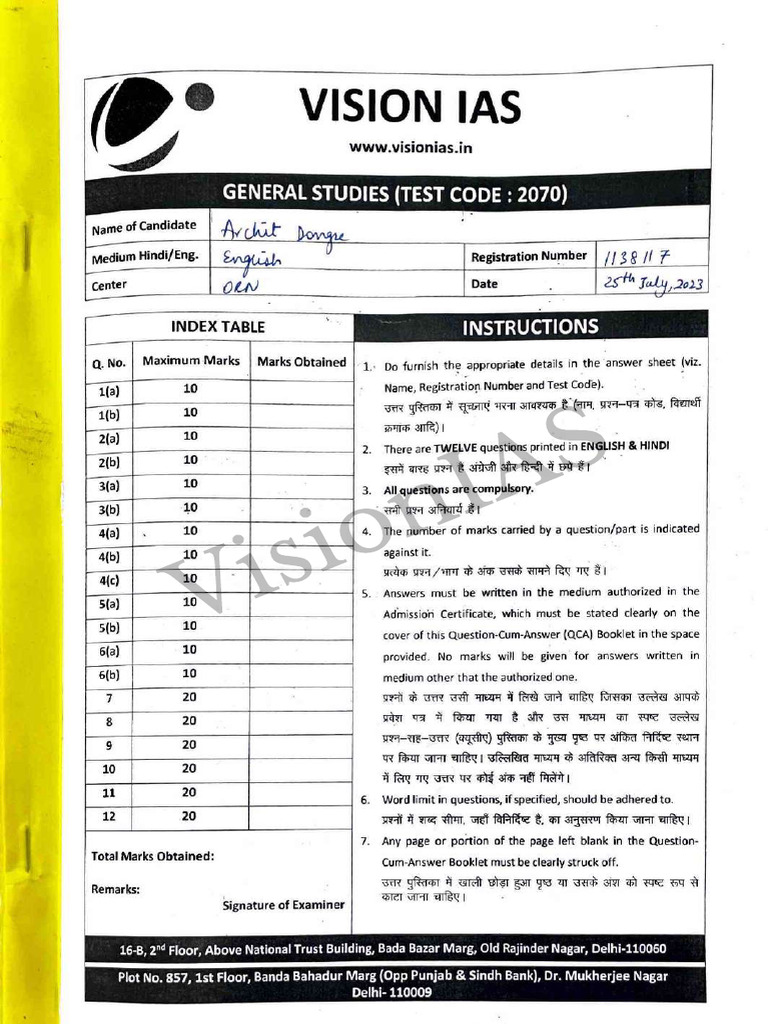 VISION IAS
www.visionias.in
GENERAL STUDIES (TEST CODE : 2070)
Name of Candidate Archit Dongre
Medium Hindi/Eng. English Registration Number 1138117
Center ORN Date 25th July, 2023
INDEX TABLE
Q. No. Maximum Marks Marks Obtained
1(a) 10
1(b) 10
2(a) 10
2(b) 10
3(a) 10
3(b) 10
4(a) 10
4(b) 10
4(c) 10
5(a) 10
5(b) 10
6(a) 10
6(b) 10
7 20
8 20
9 20
10 20
11 20
12 20
Total Marks Obtained:
Remarks:
Signature of Examiner
INSTRUCTIONS
1. Do furnish the appropriate details in the answer sheet (viz.
Name, Registration Number and Test Code).
उत्तर पुस्तिका में सूचनाएं भरना आवश्यक है (नाम, प्रश्न-पत्र कोड, विद्यार्थी
क्रमांक आदि)।
2. There are TWELVE questions printed in ENGLISH & HINDI
इसमें बारह प्रश्न है अंग्रेजी और हिन्दी में छपे हैं।
3. All questions are compulsory.
सभी प्रश्न अनिवार्य हैं।
4. The number of marks carried by a question/part is indicated
against it.
प्रत्येक प्रश्न/भाग के अंक उसके सामने दिए गए हैं।
5. Answers must be written in the medium authorized in the
Admission Certificate, which must be stated clearly on the
cover of this Question-Cum-Answer (QCA) Booklet in the space
provided. No marks will be given for answers written in
medium other that the authorized one.
प्रश्नों के उत्तर उसी माध्यम में लिखे जाने चाहिए जिसका उल्लेख आपके
प्रवेश पत्र में किया गया है और उस माध्यम का स्पष्ट उल्लेख
प्रश्न-सह-उत्तर (क्यूसीए) पुस्तिका के मुख्य पृष्ठ पर अंकित निर्दिष्ट स्थान
पर किया जाना चाहिए। उल्लिखित माध्यम के अतिरिक्त अन्य किसी माध्यम
में लिए गए उत्तर पर कोई अंक नहीं मिलेंगे।
6. Word limit in questions, if specified, should be adhered to.
प्रश्नों में शब्द सीमा, जहाँ विनिर्दिष्ट है, का अनुसरण किया जाना चाहिए।
7. Any page or portion of the page left blank in the Question-
Cum-Answer Booklet must be clearly struck off.
उत्तर पुस्तिका में खाली छोड़ा हुआ पृष्ठ या उसके अंश को स्पष्ट रूप से
काटा जाना चाहिए।
VisionIAS
16-B, 2nd Floor, Above National Trust Building, Bada Bazar Marg, Old Rajinder Nagar, Delhi-110060
Plot No. 857, 1st Floor, Banda Bahadur Marg (Opp Punjab & Sindh Bank), Dr. Mukherjee Nagar
Delhi- 110009